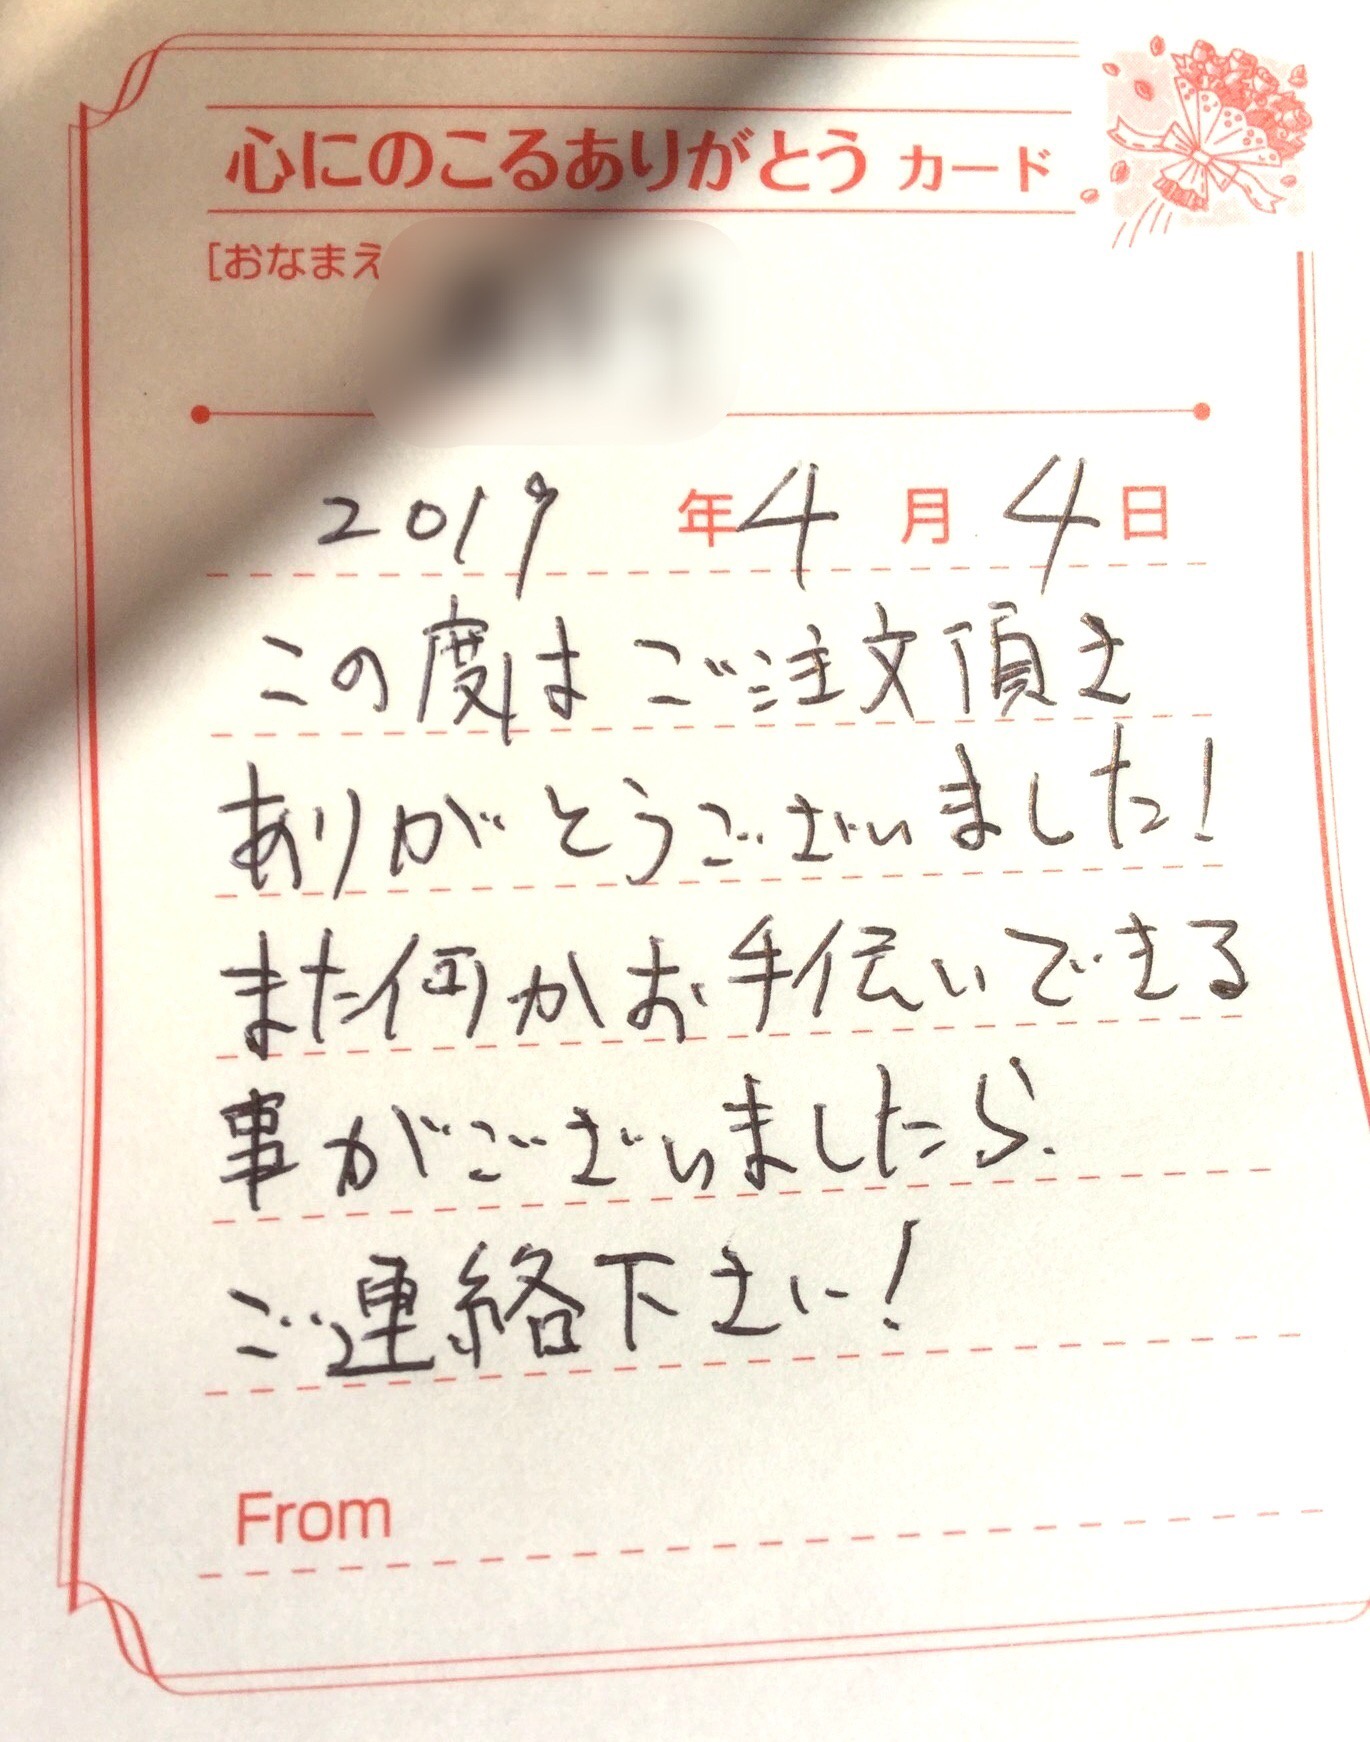 心にのこるありがとう カード
[おなまえ
2019年4月4日
この度はご注文頂き
ありがとうございました!
また何かお手伝いできる
事がございましたら.
ご連絡下さい!
From